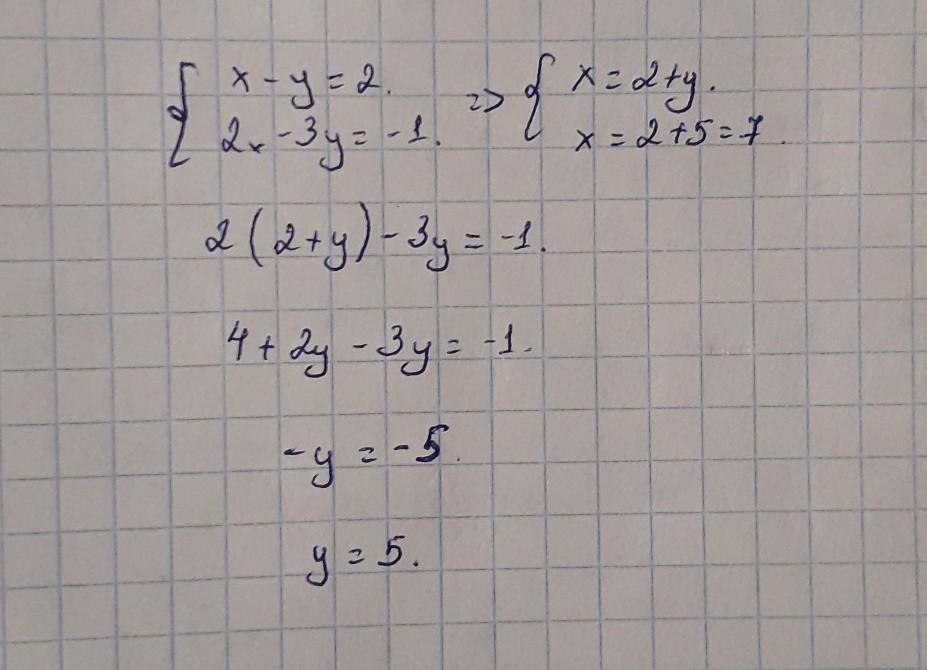 { x - y = 2. => { x = 2 + y.
2x - 3y = -1. x = 2 + 5 = 7.
2(2 + y) - 3y = -1.
4 + 2y - 3y = -1.
-y = -5.
y = 5.